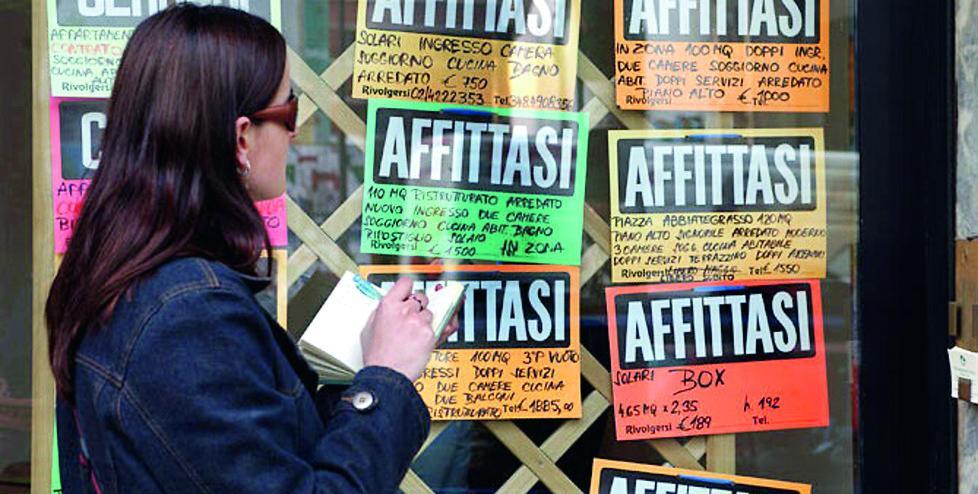 APPARTAMENTO
CONTRATTO
SOGGIORNO
CUCINA AB
AFFITTASI
SOLARI INGRESSO CAMERA
SOGGIORNO CUCINA BAGNO
ARREDATO € 750
Rivolgersi 02/4222353 Tel.
AFFITTASI
IN ZONA 100 MQ DOPPI INGR.
DUE CAMERE SOGGIORNO CUCINA
ABIT. DOPPI SERVIZI ARREDATO
PIANO ALTO € 1000
Rivolgersi Tel.
AFFITTASI
110 MQ RISTRUTTURATO ARREDATO
NUOVO INGRESSO DUE CAMERE
SOGGIORNO CUCINA ABIT. BAGNO
RIPOSTIGLIO SOLAIO IN ZONA
Rivolgersi € 1500
AFFITTASI
PIAZZA ABBIATEGRASSO 120 MQ
PIANO ALTO SIGNORILE ARREDATO MODERNO
3 CAMERE SOGG. CUCINA ABITABILE
DOPPI SERVIZI TERRAZZINO DOPPI ASCENSORI
Rivolgersi LIBERO SUBITO Tel. € 1550
TTASI
TORE 100 MQ 3°P VUOTO
GRESSI DOPPI SERVIZI
DUE CAMERE CUCINA
DUE BALCONI
RISTRUTTURATO Tel. € 1885,00
AFFITTASI
SOLARI BOX
4,65 MQ x 2,35 h. 192
Rivolgersi € 189 Tel.
AFFITTASI